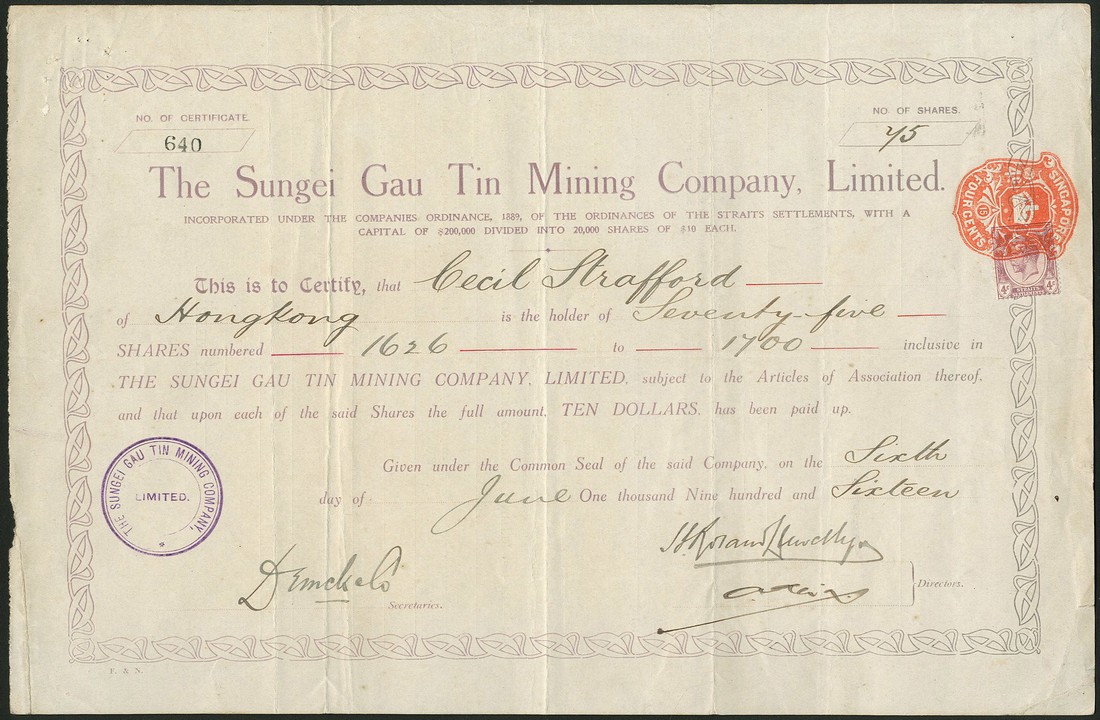 NO. OF CERTIFICATE.
640
NO. OF SHARES.
75
The Sungei Gau Tin Mining Company, Limited.
INCORPORATED UNDER THE COMPANIES ORDINANCE, 1889, OF THE ORDINANCES OF THE STRAITS SETTLEMENTS, WITH A
CAPITAL OF $200,000 DIVIDED INTO 20,000 SHARES OF $10 EACH.
SINGAPORE
FOUR CENTS
4c STRAITS 4c
This is to Certify, that Cecil Strafford
of Hongkong is the holder of Seventy-five
SHARES numbered 1626 to 1700 inclusive in
THE SUNGEI GAU TIN MINING COMPANY, LIMITED, subject to the Articles of Association thereof,
and that upon each of the said Shares the full amount, TEN DOLLARS, has been paid up.
Given under the Common Seal of the said Company, on the Sixth
day of June One thousand Nine hundred and Sixteen
THE SUNGEI GAU TIN MINING COMPANY,
LIMITED.
Secretaries.
Directors.
F. & N.